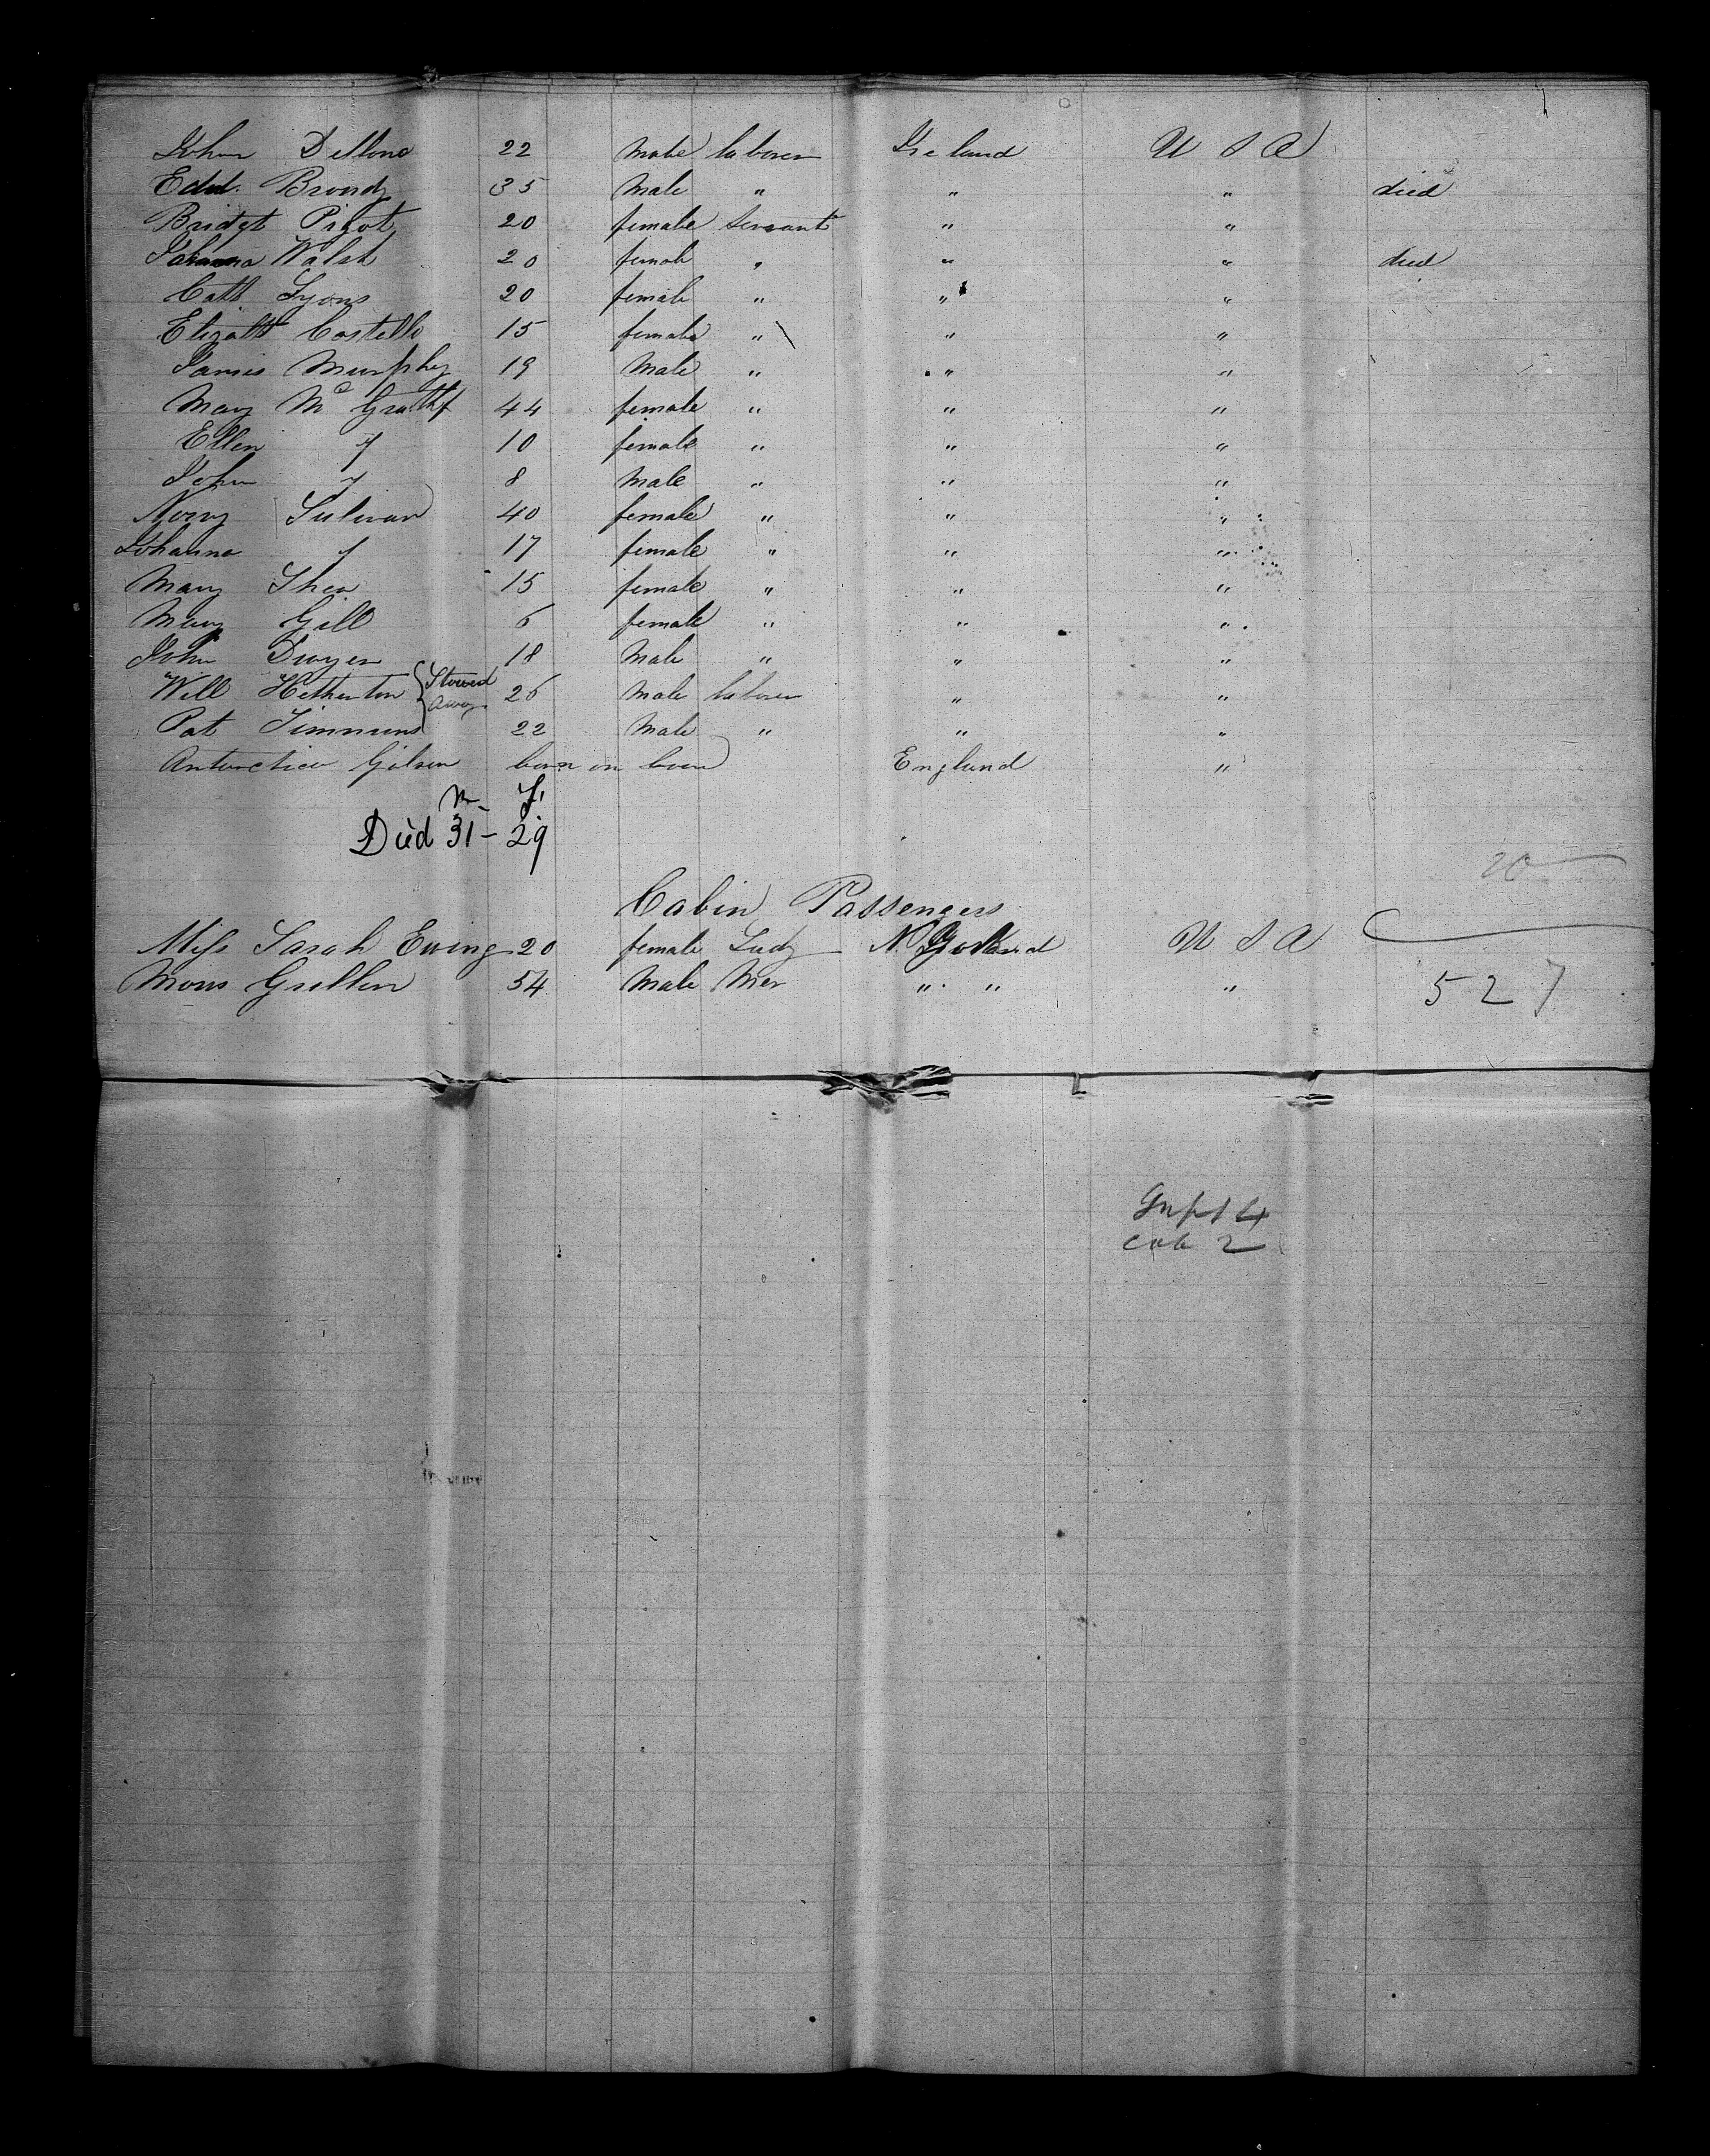 John Dellone 22 male laborer Ireland U S A
Edwd. Brondy 35 Male " " " died
Bridgt Pigot 20 female Servant " "
Johanna Walsh 20 female " " " died
Cath Lyons 20 female " " "
Elizabth Costello 15 female " " "
James Murphy 19 Male " " "
Mary Mc Grath 44 female " " "
Ellen " 10 female " " "
John " 8 Male " " "
Norry Sulivan 40 female " " "
Johanna " 17 female " " "
Mary Shea 15 female " " "
Mary Gill 6 female " " "
John Dwyer 18 Male " " "
Will Hetherton { Stowed Away 26 Male laborer " "
Pat Timmins 22 Male " " "
Antarctica Gilson born on boar England "
M F
Died 31 - 29
20
Cabin Passengers
Miss Sarah Ewing 20 female Lady N. U S A
Mons Grillen 54 Male Mer " " "
527
Inft 4
cab 2